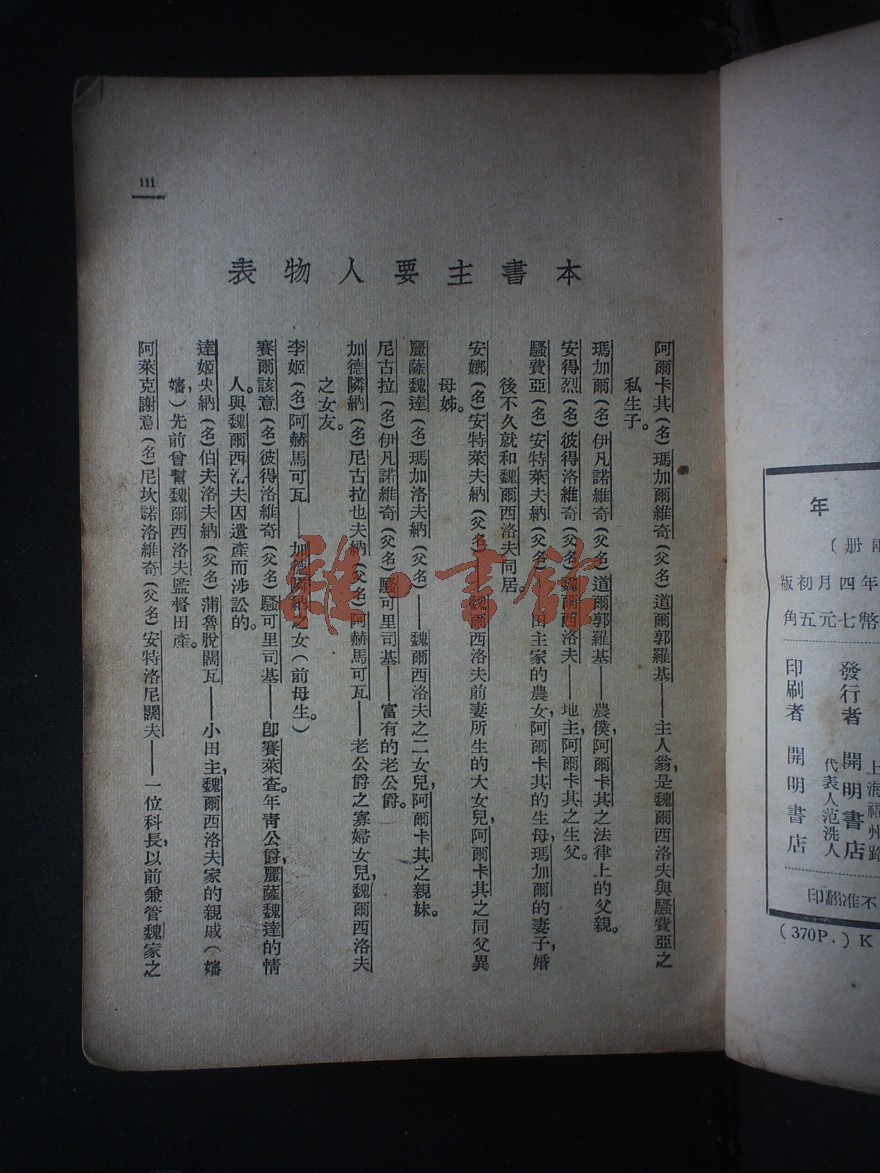 111
本書主要人物表
阿爾卡其(名)瑪加爾維奇(父名)道爾郭羅基——主人翁,是魏爾西洛夫與騷費亞之
私生子。
瑪加爾(名)伊凡諾維奇(父名)道爾郭羅基——農僕,阿爾卡其之法律上的父親。
安得烈(名)彼得洛維奇(父名)魏爾西洛夫——地主,阿爾卡其之生父。
騷費亞(名)安特萊夫納(父名)——田主家的農女,阿爾卡其的生母,瑪加爾的妻子,婚
後不久就和魏爾西洛夫同居。
安娜(名)安特萊夫納(父名)魏爾西洛夫前妻所生的大女兒,阿爾卡其之同父異
母姊。
麗薩魏達(名)瑪加洛夫納(父名)——魏爾西洛夫之二女兒,阿爾卡其之親妹。
尼古拉(名)伊凡諾維奇(父名)騷可里司基——富有的老公爵。
加德隣納(名)尼古拉也夫納(父名)阿赫馬可瓦——老公爵之寡婦女兒,魏爾西洛夫
之女友。
李姬(名)阿赫馬可瓦——加德隣納之女(前母生。)
賽爾該意(名)彼得洛維奇(父名)騷可里司基——卽賽萊查。年青公爵,麗薩魏達的情
人。與魏爾西洛夫因遺產而涉訟的。
達姬央納(名)伯夫洛夫納(父名)蒲魯脫闊瓦——小田主,魏爾西洛夫家的親戚(嬸
嬸,)先前曾幫魏爾西洛夫監督田產。
阿萊克謝意(名)尼坎諾洛維奇(父名)安特洛尼闊夫——一位科長,以前兼管魏家之
雜·書館
年
册)
年四月初版
幣七元五角
上海福州路
發行者 開明書店
代表人范洗人
印刷者 開明書店
不准翻印
(370P.) K